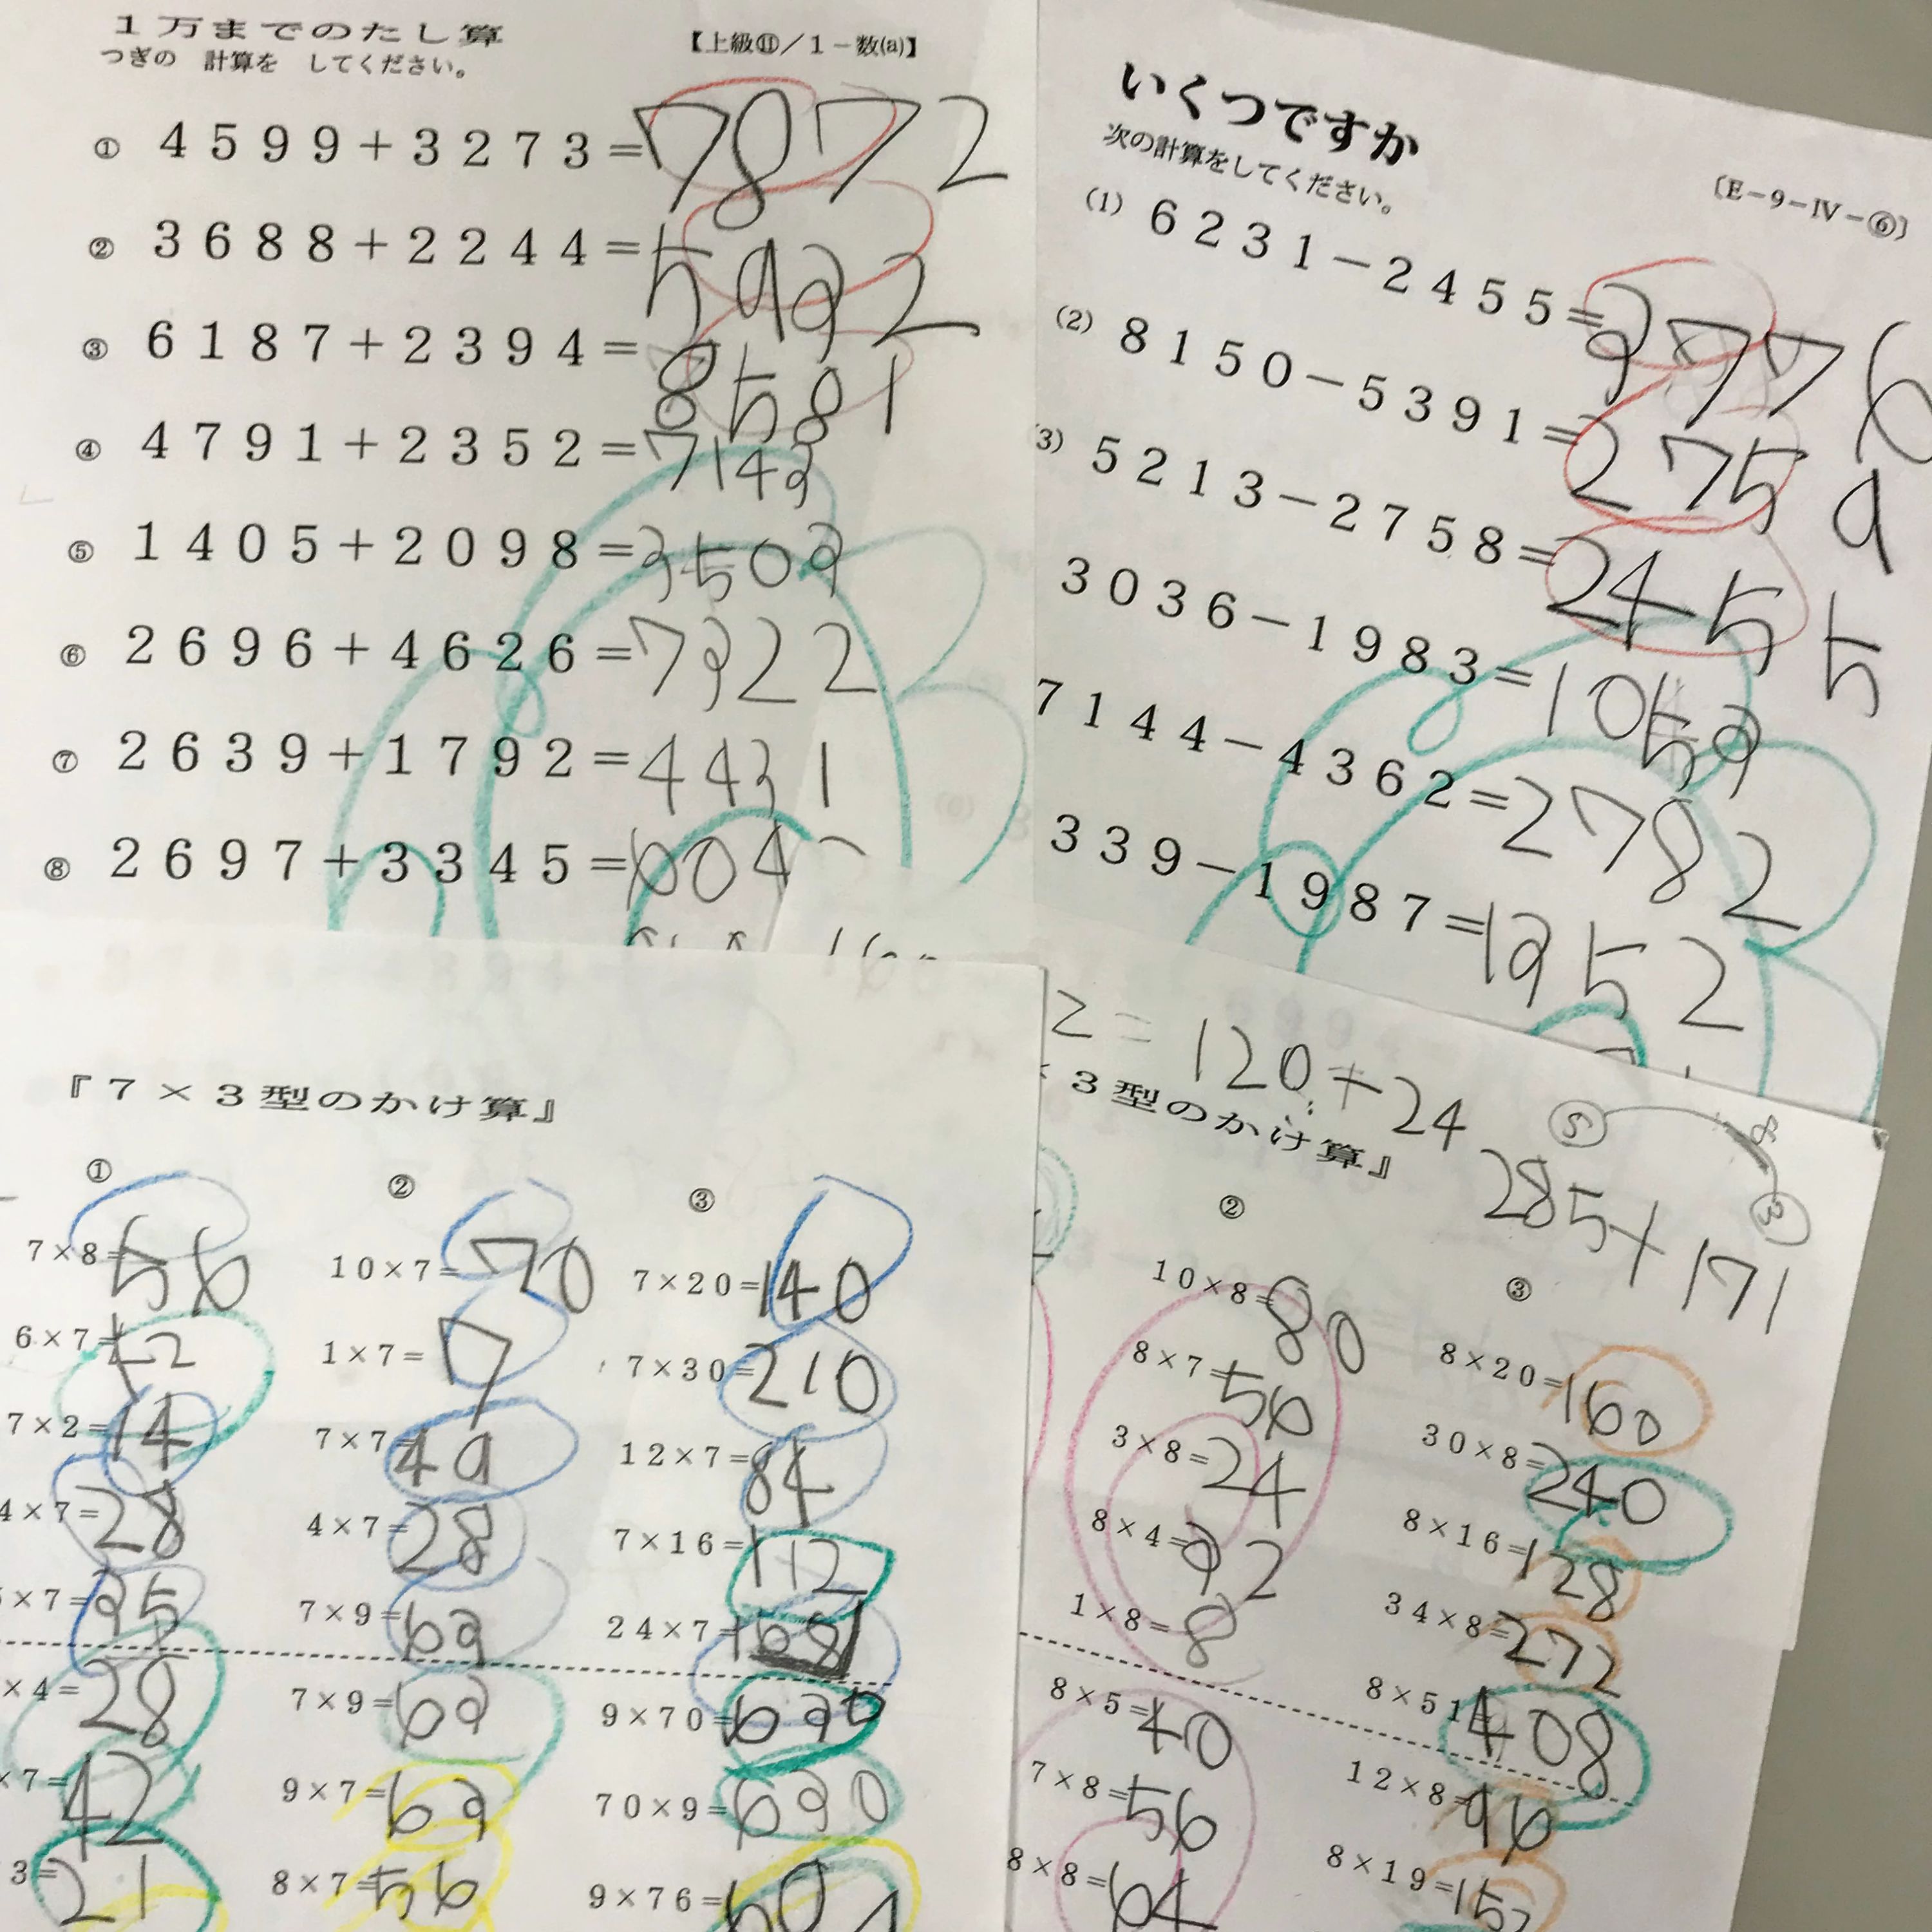 １万までのたし算
つぎの 計算を してください。
【上級⑪／１－数(a)】
① 4599+3273=7872
② 3688+2244=5932
③ 6187+2394=8581
④ 4791+2352=7143
⑤ 1405+2098=3503
⑥ 2696+4626=7322
⑦ 2639+1792=4431
⑧ 2697+3345=604
いくつですか
次の計算をしてください。
〔E－9－Ⅳ－⑥〕
(1) 6231-2455=3776
(2) 8150-5391=2759
(3) 5213-2758=2455
3036-1983=1053
7144-4362=2782
339-1987=1352
『７×３型のかけ算』
①
7×8=56
6×7=42
7×2=14
4×7=28
×7=35
×4=28
×7=42
3=21
②
10×7=70
1×7=7
7×7=49
4×7=28
7×9=63
7×9=63
9×7=63
8×7=56
③
7×20=140
7×30=210
12×7=84
7×16=112
24×7=168
9×70=630
70×9=630
9×76=
2=120+24
×３型のかけ算』
⑤ 8 ③
285+171
②
10×8=80
8×7=56
3×8=24
8×4=32
1×8=8
8×5=40
7×8=56
8×8=64
③
8×20=160
30×8=240
8×16=128
34×8=272
8×51=408
12×8=96
8×19=152